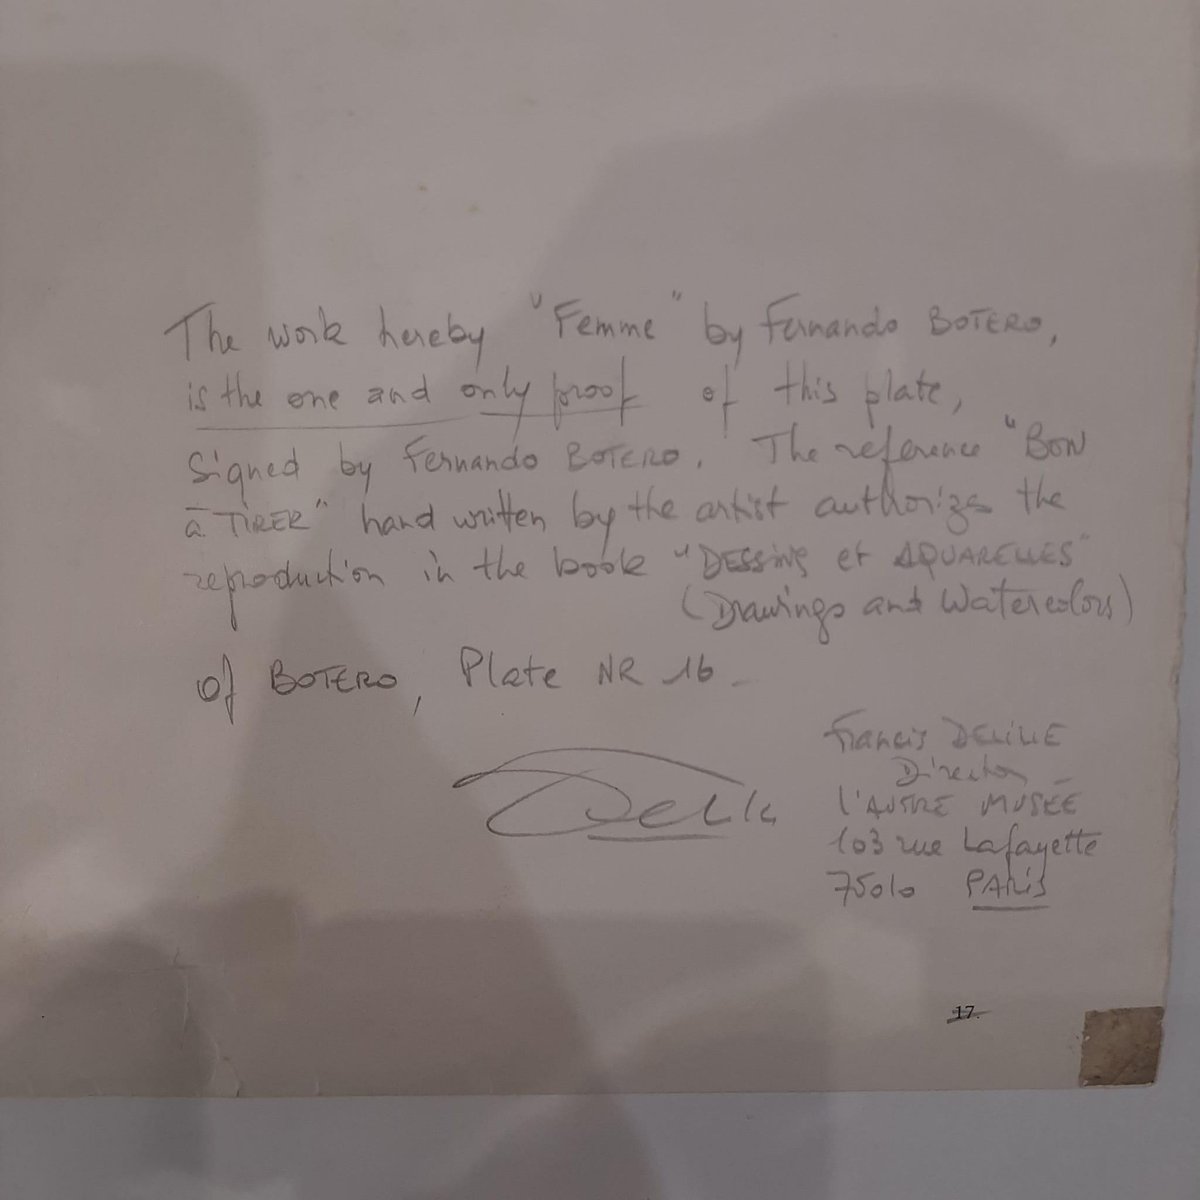 The work hereby "Femme" by Fernando BOTERO,
is the one and only proof of this plate,
signed by Fernando BOTERO. The reference "BON
à TIRER" hand written by the artist authorize the
reproduction in the book "DESSINS et AQUARELLES"
(Drawings and Watercolors)
of BOTERO, Plate NR 16
Francis DELILLE
Director
L'AUTRE MUSÉE
103 rue Lafayette
75010 PARIS
17.